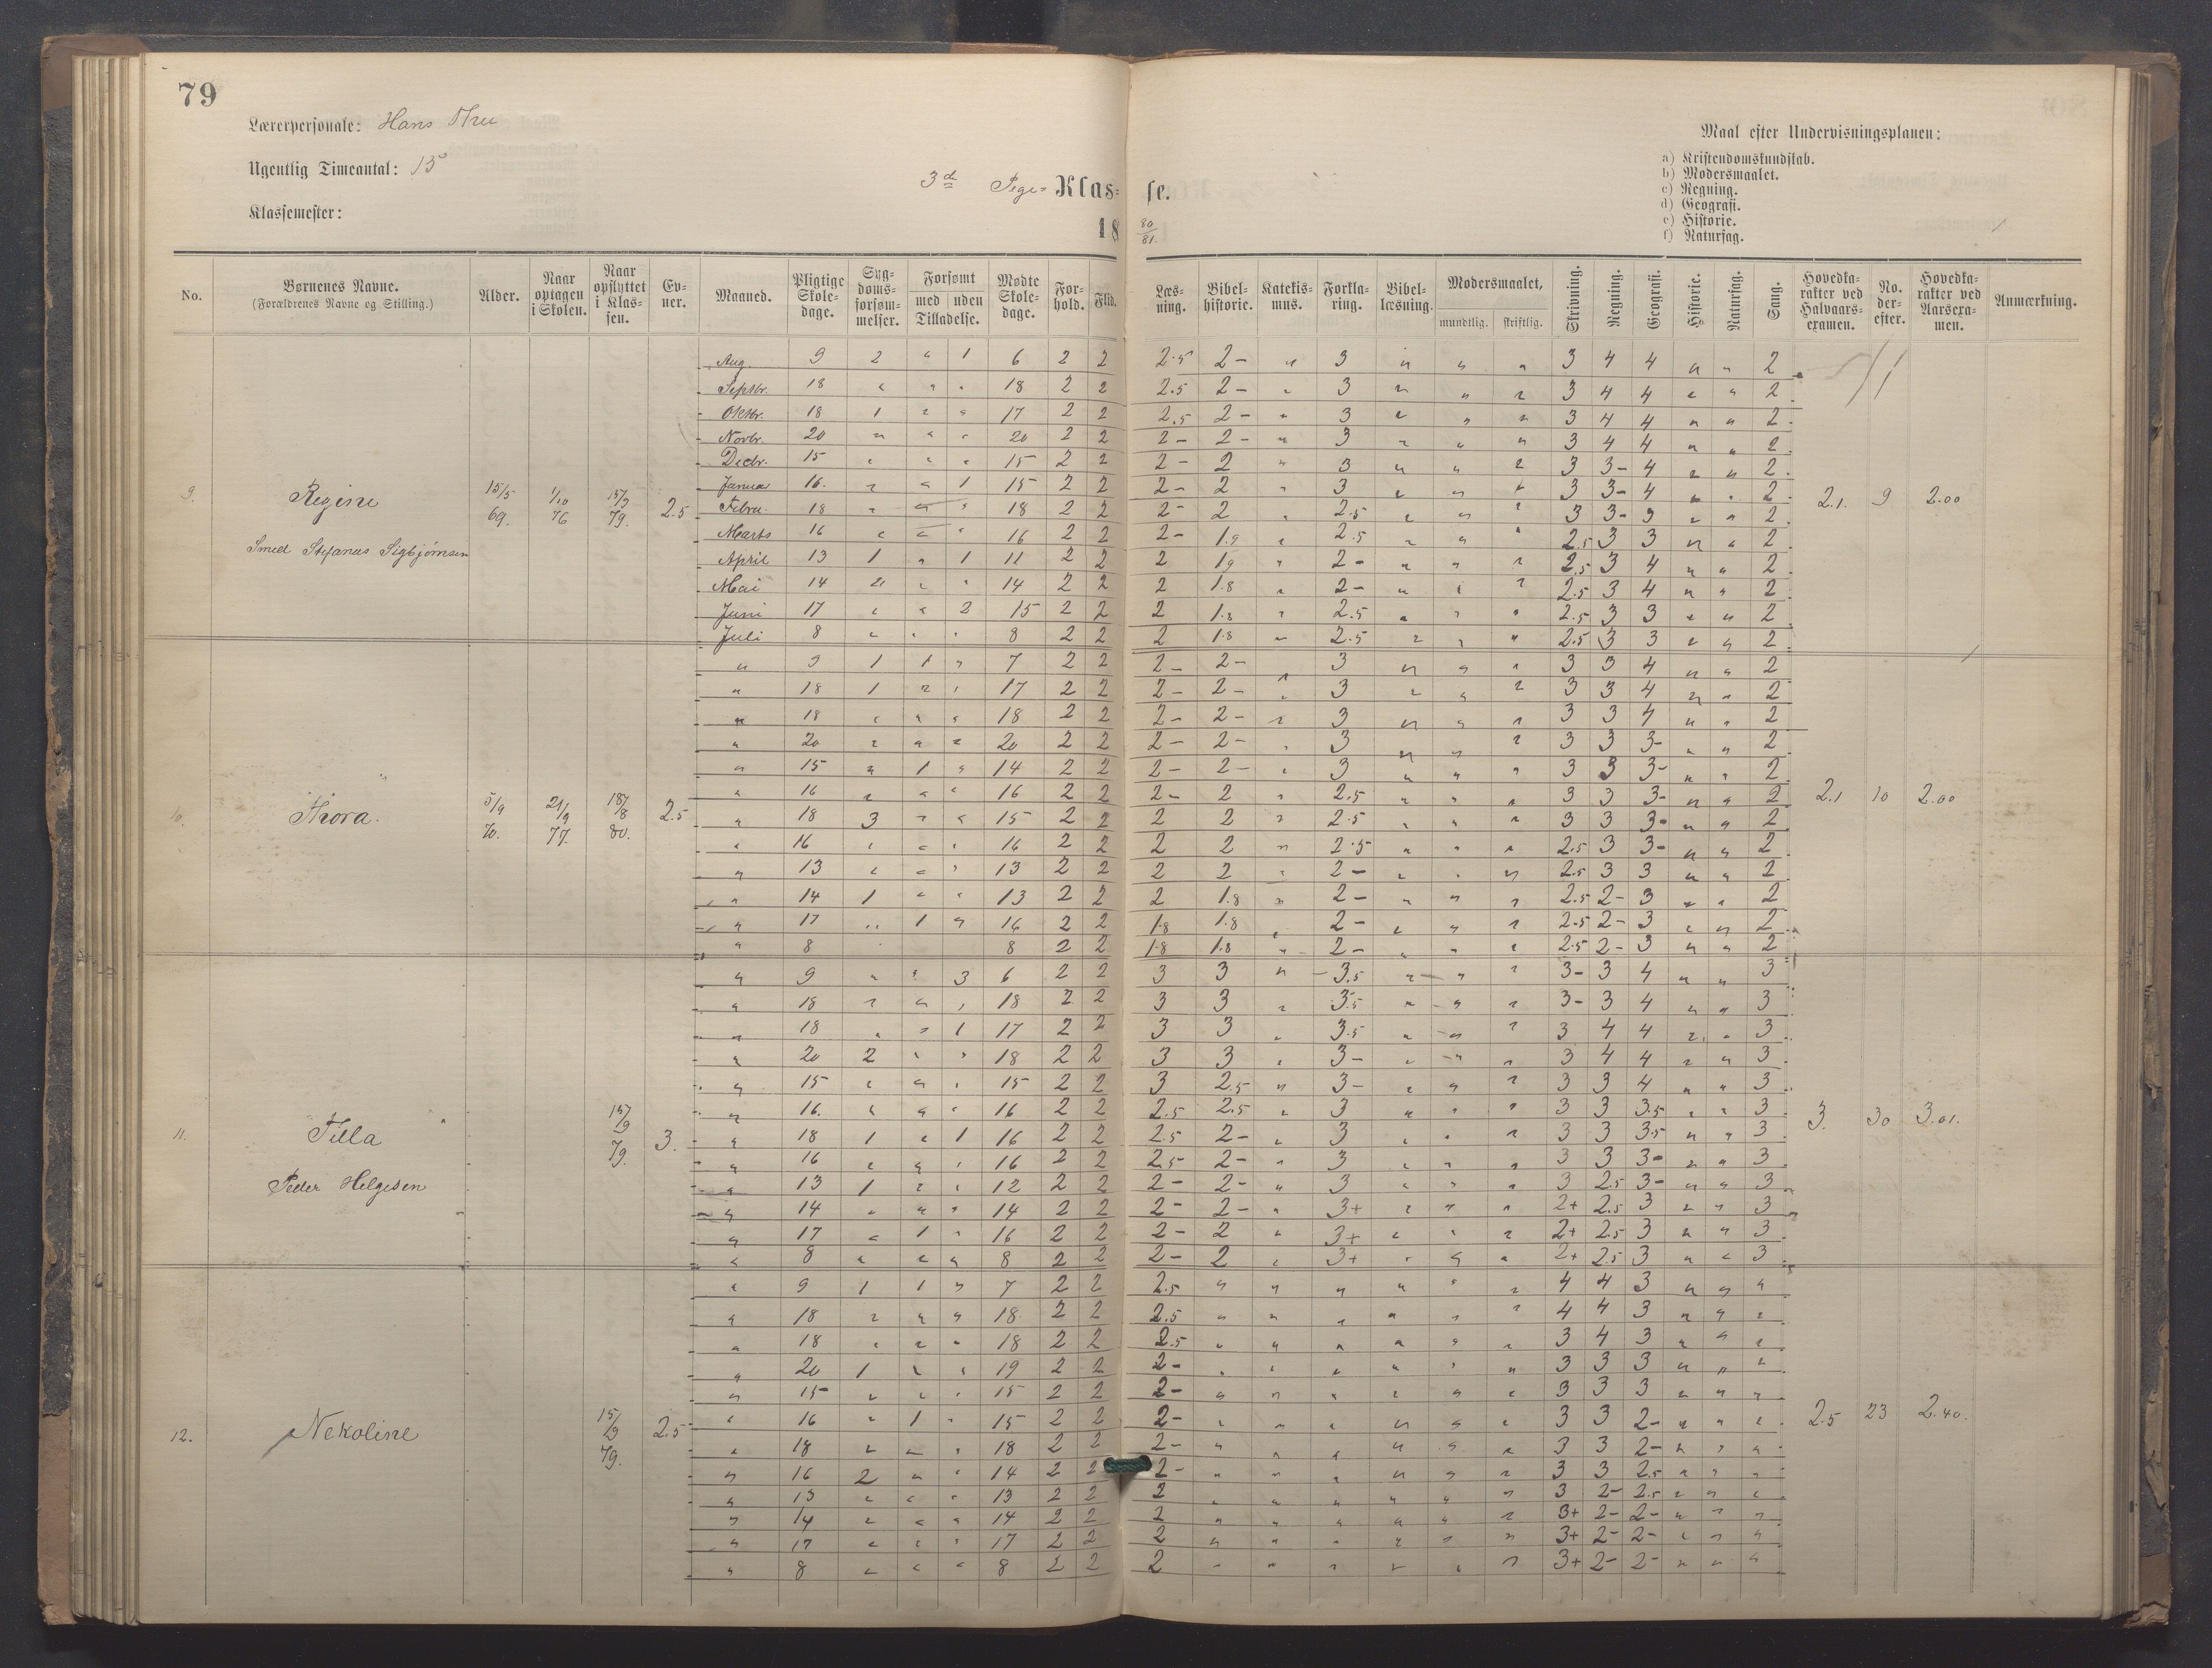 79
Lærerpersonale: Hans
Ugentlig Timeantal: 15
Klassemester:
3de Pige- Klasse.
18 80/81.
Maal efter Undervisningsplanen:
a) Kristendomskundskab.
b) Modersmaalet.
c) Regning.
d) Geografi.
e) Historie.
f) Naturfag.
No. Børnenes Navne. (Forældrenes Navne og Stilling.) Alder. Naar optagen i Skolen. Naar opflyttet i Klassen. Evner. Maaned. Pligtige Skoledage. Sygdomsforsømmelser. Forsømt med uden Tilladelse. Mødte Skoledage. Forhold. Flid. Læsning. Bibelhistorie. Katekismus. Forklaring. Bibellæsning. Modersmaalet, mundtlig. skriftlig. Skrivning. Regning. Geografi. Historie. Naturfag. Sang. Hovedkarakter ved Halvaarsexamen. No. derefter. Hovedkarakter ved Aarsexamen. Anmærkning.
Aug. 9 2 " 1 6 2 2 2.5 2- " 3 " " " 3 4 4 " " 2
Septbr. 18 " " " 18 2 2 2.5 2- " 3 " " " 3 4 4 " " 2
Oktbr. 18 1 " " 17 2 2 2.5 2- " 3 " " " 3 4 4 " " 2
Novbr. 20 " " " 20 2 2 2- 2- " 3 " " " 3 4 4 " " 2
Decbr. 15 " " " 15 2 2 2- 2 " 3 " " " 3 3- 4 " " 2
Januar 16. " " 1 15 2 2 2- 2 " 3 " " " 3 3- 4 " " 2
9. Regine 15/5 69. 1/10 76 15/9 79. 2.5 2.1. 9 2.00
Febru. 18 " " " 18 2 2 2- 2 " 2.5 " " " 3 3- 3 " " 2
Smed Stefanus Sigbjørnsen
Marts 16 " " " 16 2 2 2- 1.9 " 2.5 " " " 2.5 3 3 " " 2
April 13 1 " 1 11 2 2 2 1.9 " 2- " " " 2.5 3 4 " " 2
Mai 14 " " " 14 2 2 2 1.8 " 2- " " " 2.5 3 4 " " 2
Juni 17 " " 2 15 2 2 2 1.8 " 2.5 " " " 2.5 3 3 " " 2
Juli 8 " " " 8 2 2 2 1.8 " 2.5 " " " 2.5 3 3 " " 2
" 9 1 1 " 7 2 2 2- 2- " 3 " " " 3 3 4 " " 2
" 18 1 " " 17 2 2 2- 2- " 3 " " " 3 3 4 " " 2
" 18 " " " 18 2 2 2- 2- " 3 " " " 3 3 4 " " 2
" 20 " " " 20 2 2 2- 2- " 3 " " " 3 3 3- " " 2
" 15 " 1 " 14 2 2 2- 2- " 3 " " " 3 3 3- " " 2
" 16 " " " 16 2 2 2- 2 " 2.5 " " " 3 3 3- " " 2
10. Thora. 5/9 70. 21/9 77. 18/8 80. 2.5 2.1 10 2.00
" 18 3 " " 15 2 2 2 2 " 2.5 " " " 3 3 3- " " 2
" 16 " " " 16 2 2 2 2 " 2.5 " " " 2.5 3 3- " " 2
" 13 " " " 13 2 2 2 2 " 2- " " " 2.5 3 3 " " 2
" 14 1 " " 13 2 2 2 1.8 " 2- " " " 2.5 2- 3 " " 2
" 17 " 1 " 16 2 2 1.8 1.8 " 2- " " " 2.5 2- 3 " " 2
" 8 8 2 2 1.8 1.8 " 2- " " " 2.5 2- 3 " " 2
" 9 " " 3 6 2 2 3 3 " 3.5 " " " 3- 3 4 " " 3
" 18 " " " 18 2 2 3 3 " 3.5 " " " 3- 3 4 " " 3
" 18 " " 1 17 2 2 3 3 " 3.5 " " " 3 4 4 " " 3
" 20 2 " " 18 2 2 3 3 " 3- " " " 3 4 4 " " 3
" 15 " " " 15 2 2 3 2.5 " 3- " " " 3 3 4 " " 3
" 16. " " " 16 2 2 2.5 2.5 " 3 " " " 3 3 3.5 " " 3
11. Tilla 15/9 79. 3. 3. 30 3.01.
" 18 1 " 1 16 2 2 2.5 2- " 3 " " " 3 3 3.5 " " 3
Peder Helgesen
" 16 " " " 16 2 2 2.5 2- " 3 " " " 3 3 3- " " 3
" 13 1 " " 12 2 2 2- 2- " 3 " " " 3 2.5 3- " " 3
" 14 " " " 14 2 2 2- 2- " 3+ " " " 2+ 2.5 3 " " 3
" 17 " 1 " 16 2 2 2- 2 " 3+ " " " 2+ 2.5 3 " " 3
" 8 " " " 8 2 2 2- 2 " 3+ " " " 2+ 2.5 3 " " 3
" 9 1 1 " 7 2 2 2.5 " " " " " " 4 4 3 " " "
" 18 " " " 18 2 2 2.5 " " " " " " 4 4 3 " " "
" 18 " " " 18 2 2 2.5 " " " " " " 3 4 3 " " "
" 20 1 " " 19 2 2 2- " " " " " " 3 3 3 " " "
" 15 " " " 15 2 2 2- " " " " " " 3 3 3 " " "
" 16 " 1 " 15 2 2 2- " " " " " " 3 3 2- " " "
12. Nekoline 15/9 79. 2.5 2.5 23 2.40.
" 18 " " " 18 2 2 2- " " " " " " 3 3 2- " " "
" 16 2 " " 14 2 2 2- " " " " " " 3 3 2.5 " " "
" 13 " " " 13 2 2 2 " " " " " " 3 2- 2.5 " " "
" 14 " " " 14 2 2 2 " " " " " " 3+ 2- 2- " " "
" 17 " " " 17 2 2 2 " " " " " " 3+ 2- 2- " " "
" 8 " " " 8 2 2 2 " " " " " " 3+ 2- 2- " " "